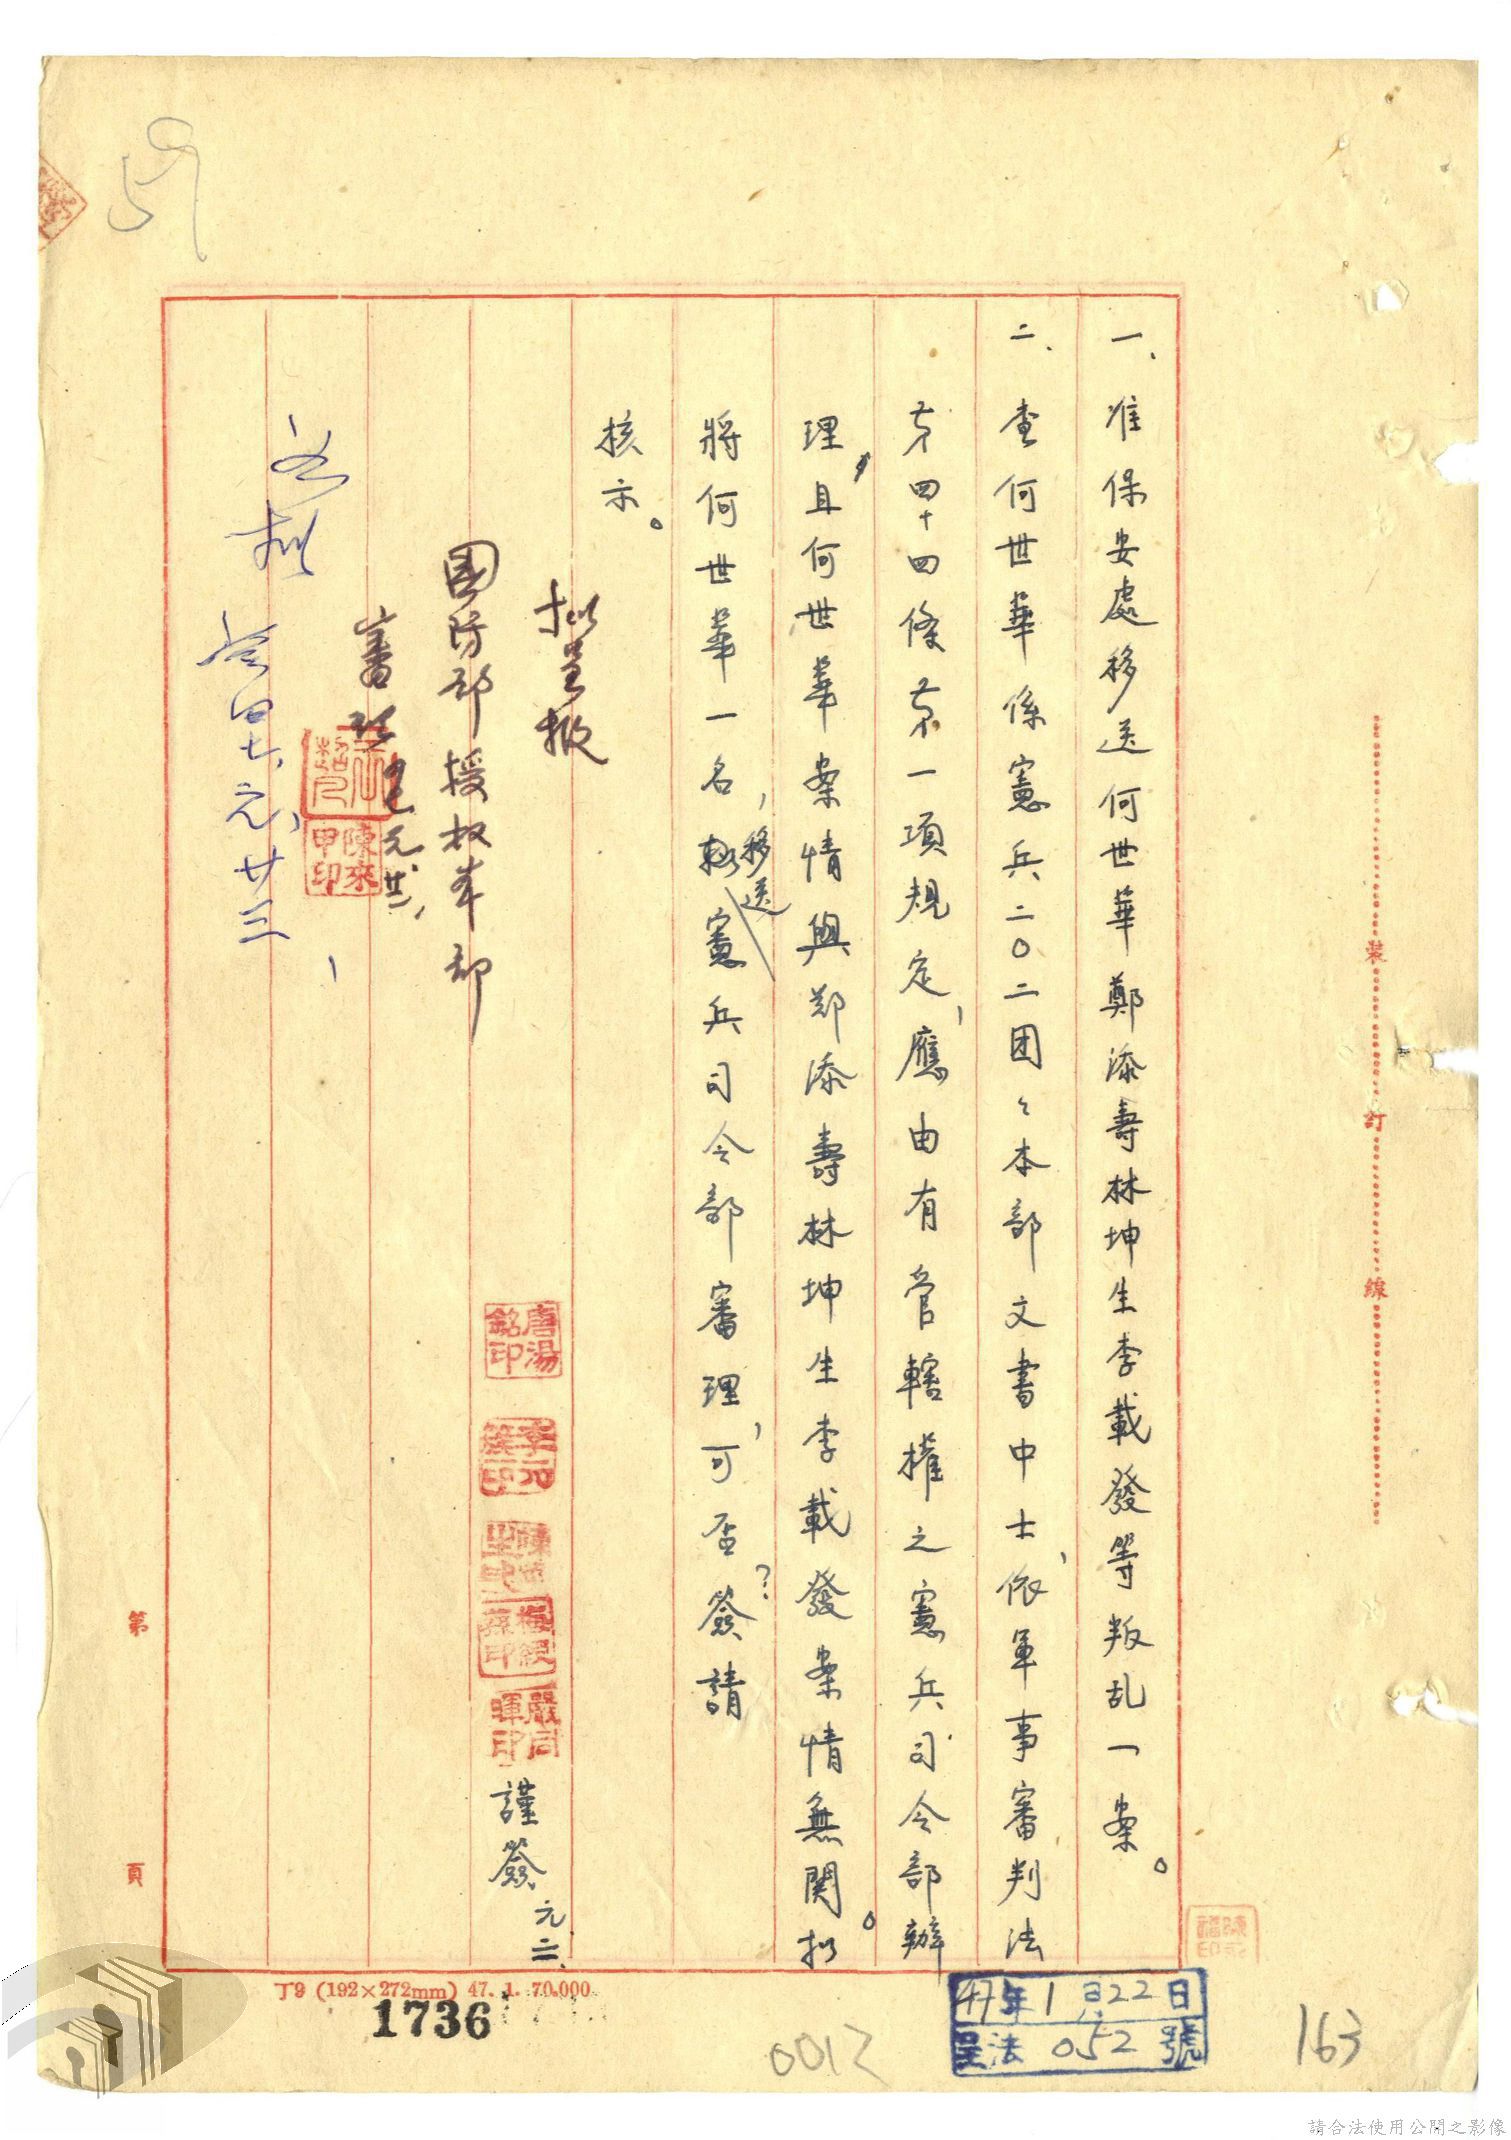 一、准保安處移送何世華鄭添壽林坤生李載發等叛乱一案。
二、查何世華係憲兵二〇二团々本部文書中士，依軍事審判法
第四十四條第一項規定，應由有管轄權之憲兵司令部辦
理，且何世華案情與郑添壽林坤生李載發案情無関。拟
將何世華一名，移送憲兵司令部審理，可否？簽請
核示。
拟呈報
國防部授权本部
審
如拟
四七、元、廿三
唐湯銘印
嚴同暉印
謹簽 元、二
陳來甲印
裝訂線
第 頁
丁9 (192×272mm) 47. 1. 70.000.
1736
0012
47年1月22日
呈法 052 號
163
59
請合法使用公開之影像